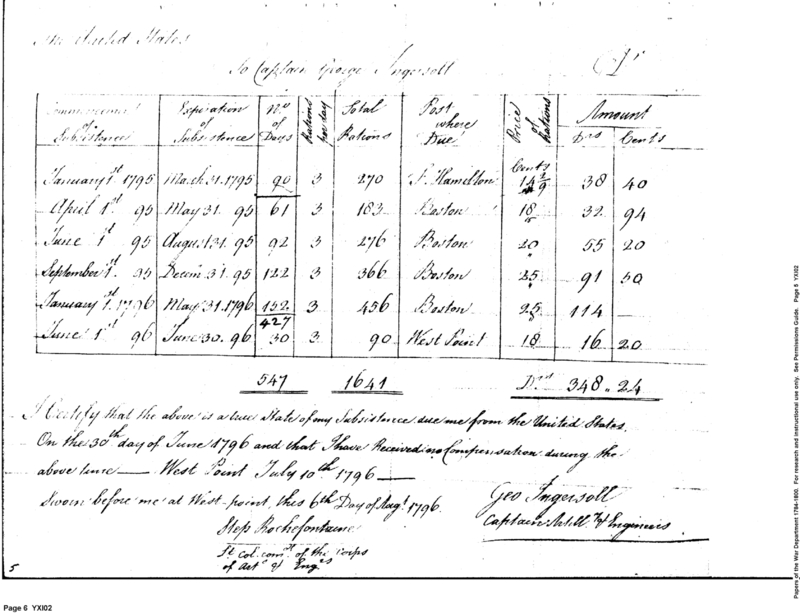 The United States
To Captain George Ingersoll Dr
Commencement of Subsistence | Expiration of Subsistence | No of Days | Rations per day | Total Rations | Post where Due | Price of Rations | Amount Drs | Cents
Cents
January 1st 1795 | March 31. 1795 | 90 | 3 | 270 | F. Hamilton | 14 2/9 | 38 | 40
April 1st. 95 | May 31. 95 | 61 | 3 | 183 | Boston | 18 | 32 | 94
June 1st 95 | August 31. 95 | 92 | 3 | 276 | Boston | 20 | 55 | 20
September 1st. 95 | Decem. 31. 95 | 122 | 3 | 366 | Boston | 25 | 91 | 50
January 1st. 1796 | May 31. 1796 | 152 | 3 | 456 | Boston | 25 | 114 | —
427
June 1st 96 | June 30. 96 | 30 | 3 | 90 | West Point | 18 | 16 | 20
547 1641 Drs 348. 24
I Certify that the above is a true State of my Subsistence due me from the United States.
On the 30th day of June 1796 and that I have Received no Compensation during the
above time — West Point July 10th 1796 —
Sworn before me at West point, this 6th Day of Augt 1796.
Geo Ingersoll
Captain Artill Y of Engineers
Step Rochefontaine
Lt Col. comt of the Corps
of Arts & Engrs
5
Page 6 YXI02
Papers of the War Department 1784-1800. For research and instructional use only. See Permissions Guide. Page 5 YXI02